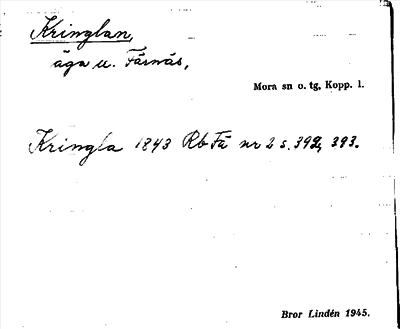 Kringlan,
äga u. Färnäs,
Mora sn o. tg, Kopp. l.
Kringla 1843 Rb Fä nr 2 s. 392, 393.
Bror Lindén 1945.